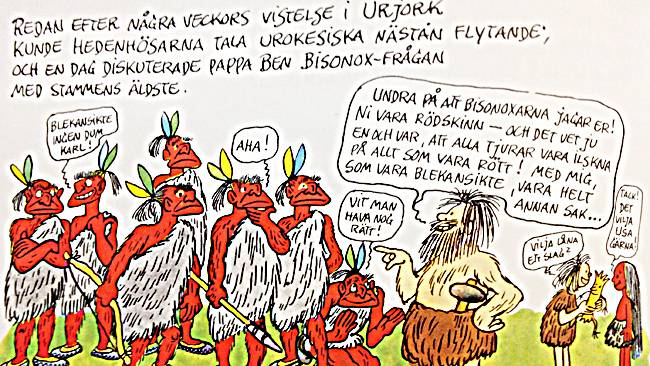 REDAN EFTER NÅGRA VECKORS VISTELSE I URJORK
KUNDE HEDENHÖSARNA TALA UROKESISKA NÄSTAN FLYTANDE,
OCH EN DAG DISKUTERADE PAPPA BEN BISONOX-FRÅGAN
MED STAMMENS ÄLDSTE.
BLEKANSIKTE
INGEN DUM
KARL!
AHA!
VIT MAN
HAVA NOG
RÄTT!
UNDRA PÅ ATT BISONOXARNA JAGAR ER!
NI VARA RÖDSKINN — OCH DET VET JU
EN OCH VAR, ATT ALLA TJURAR VARA ILSKNA
PÅ ALLT SOM VARA RÖTT! MED MIG,
SOM VARA BLEKANSIKTE, VARA HELT
ANNAN SAK...
VILJA LÅNA
ETT SLAG?
DET
VILJA
USA
GÄRNA!